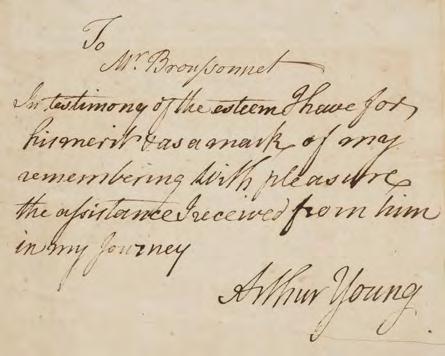 To
Mr. Broussonet
In testimony of the esteem I have for
his merit & as a mark of my
remembering with pleasure
the assistance I received from him
in my Journey
Arthur Young